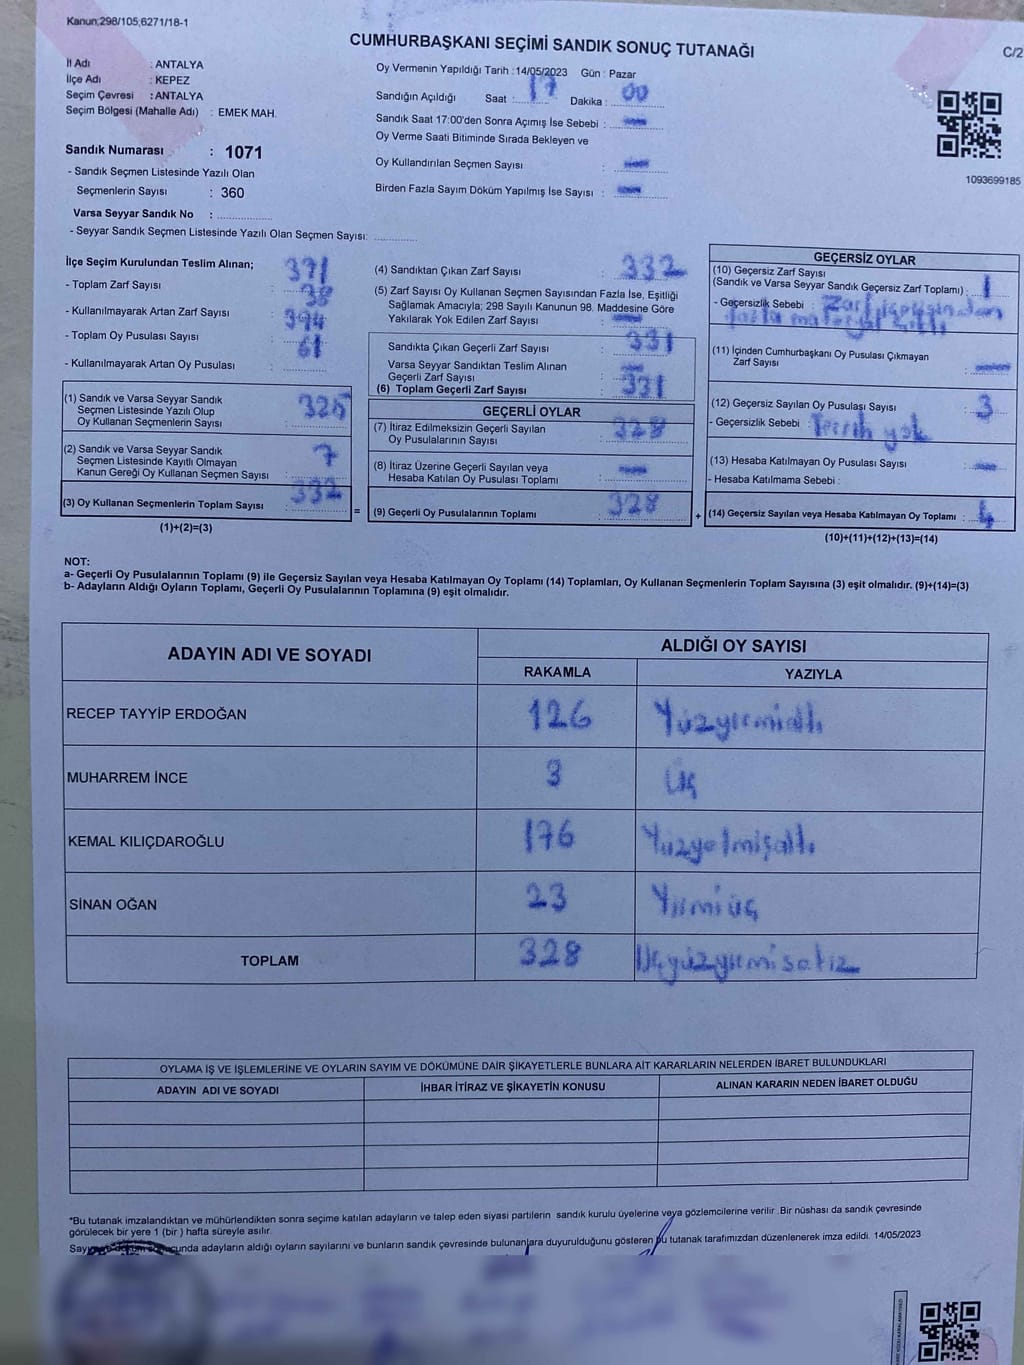 Kanun;298/105,6271/18-1
CUMHURBAŞKANI SEÇİMİ SANDIK SONUÇ TUTANAĞI
C/2
İl Adı : ANTALYA
İlçe Adı : KEPEZ
Seçim Çevresi : ANTALYA
Seçim Bölgesi (Mahalle Adı) : EMEK MAH.
Sandık Numarası : 1071
- Sandık Seçmen Listesinde Yazılı Olan
Seçmenlerin Sayısı : 360
Varsa Seyyar Sandık No :
- Seyyar Sandık Seçmen Listesinde Yazılı Olan Seçmen Sayısı:
Oy Vermenin Yapıldığı Tarih :14/05/2023 Gün : Pazar
Sandığın Açıldığı Saat : 17 Dakika : 00
Sandık Saat 17:00'den Sonra Açımış İse Sebebi :
Oy Verme Saati Bitiminde Sırada Bekleyen ve
Oy Kullandırılan Seçmen Sayısı :
Birden Fazla Sayım Döküm Yapılmış İse Sayısı :
1093699185
İlçe Seçim Kurulundan Teslim Alınan;
- Toplam Zarf Sayısı : 371
- Kullanılmayarak Artan Zarf Sayısı : 38
- Toplam Oy Pusulası Sayısı : 394
- Kullanılmayarak Artan Oy Pusulası : 61
(1) Sandık ve Varsa Seyyar Sandık
Seçmen Listesinde Yazılı Olup
Oy Kullanan Seçmenlerin Sayısı : 325
(2) Sandık ve Varsa Seyyar Sandık
Seçmen Listesinde Kayıtlı Olmayan
Kanun Gereği Oy Kullanan Seçmen Sayısı : 7
(3) Oy Kullanan Seçmenlerin Toplam Sayısı : 332
(1)+(2)=(3)
=
(4) Sandıktan Çıkan Zarf Sayısı : 332
(5) Zarf Sayısı Oy Kullanan Seçmen Sayısından Fazla İse, Eşitliği
Sağlamak Amacıyla; 298 Sayılı Kanunun 98. Maddesine Göre
Yakılarak Yok Edilen Zarf Sayısı :
Sandıkta Çıkan Geçerli Zarf Sayısı : 331
Varsa Seyyar Sandıktan Teslim Alınan
Geçerli Zarf Sayısı :
(6) Toplam Geçerli Zarf Sayısı : 331
GEÇERLİ OYLAR
(7) İtiraz Edilmeksizin Geçerli Sayılan
Oy Pusulalarının Sayısı : 328
(8) İtiraz Üzerine Geçerli Sayılan veya
Hesaba Katılan Oy Pusulası Toplamı :
(9) Geçerli Oy Pusulalarının Toplamı : 328
+
GEÇERSİZ OYLAR
(10) Geçersiz Zarf Sayısı
(Sandık ve Varsa Seyyar Sandık Geçersiz Zarf Toplamı) : 1
- Geçersizlik Sebebi : Zarf
fazla
(11) İçinden Cumhurbaşkanı Oy Pusulası Çıkmayan
Zarf Sayısı :
(12) Geçersiz Sayılan Oy Pusulası Sayısı : 3
- Geçersizlik Sebebi : Tercih yok
(13) Hesaba Katılmayan Oy Pusulası Sayısı :
- Hesaba Katılmama Sebebi :
(14) Geçersiz Sayılan veya Hesaba Katılmayan Oy Toplamı : 4
(10)+(11)+(12)+(13)=(14)
NOT:
a- Geçerli Oy Pusulalarının Toplamı (9) ile Geçersiz Sayılan veya Hesaba Katılmayan Oy Toplamı (14) Toplamları, Oy Kullanan Seçmenlerin Toplam Sayısına (3) eşit olmalıdır. (9)+(14)=(3)
b- Adayların Aldığı Oyların Toplamı, Geçerli Oy Pusulalarının Toplamına (9) eşit olmalıdır.
ADAYIN ADI VE SOYADI ALDIĞI OY SAYISI
RAKAMLA YAZIYLA
RECEP TAYYİP ERDOĞAN 126 Yüzyirmialtı
MUHARREM İNCE 3 Üç
KEMAL KILIÇDAROĞLU 176 Yüzyetmişaltı
SİNAN OĞAN 23 Yirmiüç
TOPLAM 328 Üçyüzyirmisekiz
OYLAMA İŞ VE İŞLEMLERİNE VE OYLARIN SAYIM VE DÖKÜMÜNE DAİR ŞİKAYETLERLE BUNLARA AİT KARARLARIN NELERDEN İBARET BULUNDUKLARI
ADAYIN ADI VE SOYADI İHBAR İTİRAZ VE ŞİKAYETİN KONUSU ALINAN KARARIN NEDEN İBARET OLDUĞU
*Bu tutanak imzalandıktan ve mühürlendikten sonra seçime katılan adayların ve talep eden siyasi partilerin sandık kurulu üyelerine veya gözlemcilerine verilir .Bir nüshası da sandık çevresinde
görülecek bir yere 1 (bir ) hafta süreyle asılır.
adayların aldığı oyların sayılarını ve bunların sandık çevresinde bulunanlara duyurulduğunu gösteren bu tutanak tarafımızdan düzenlenerek imza edildi. 14/05/2023